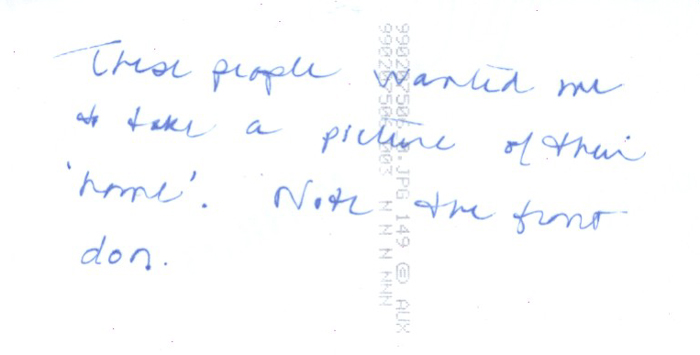 These people wanted me
to take a picture of their
'home'. Note the front
door.
149 © AUX
N N N NNN